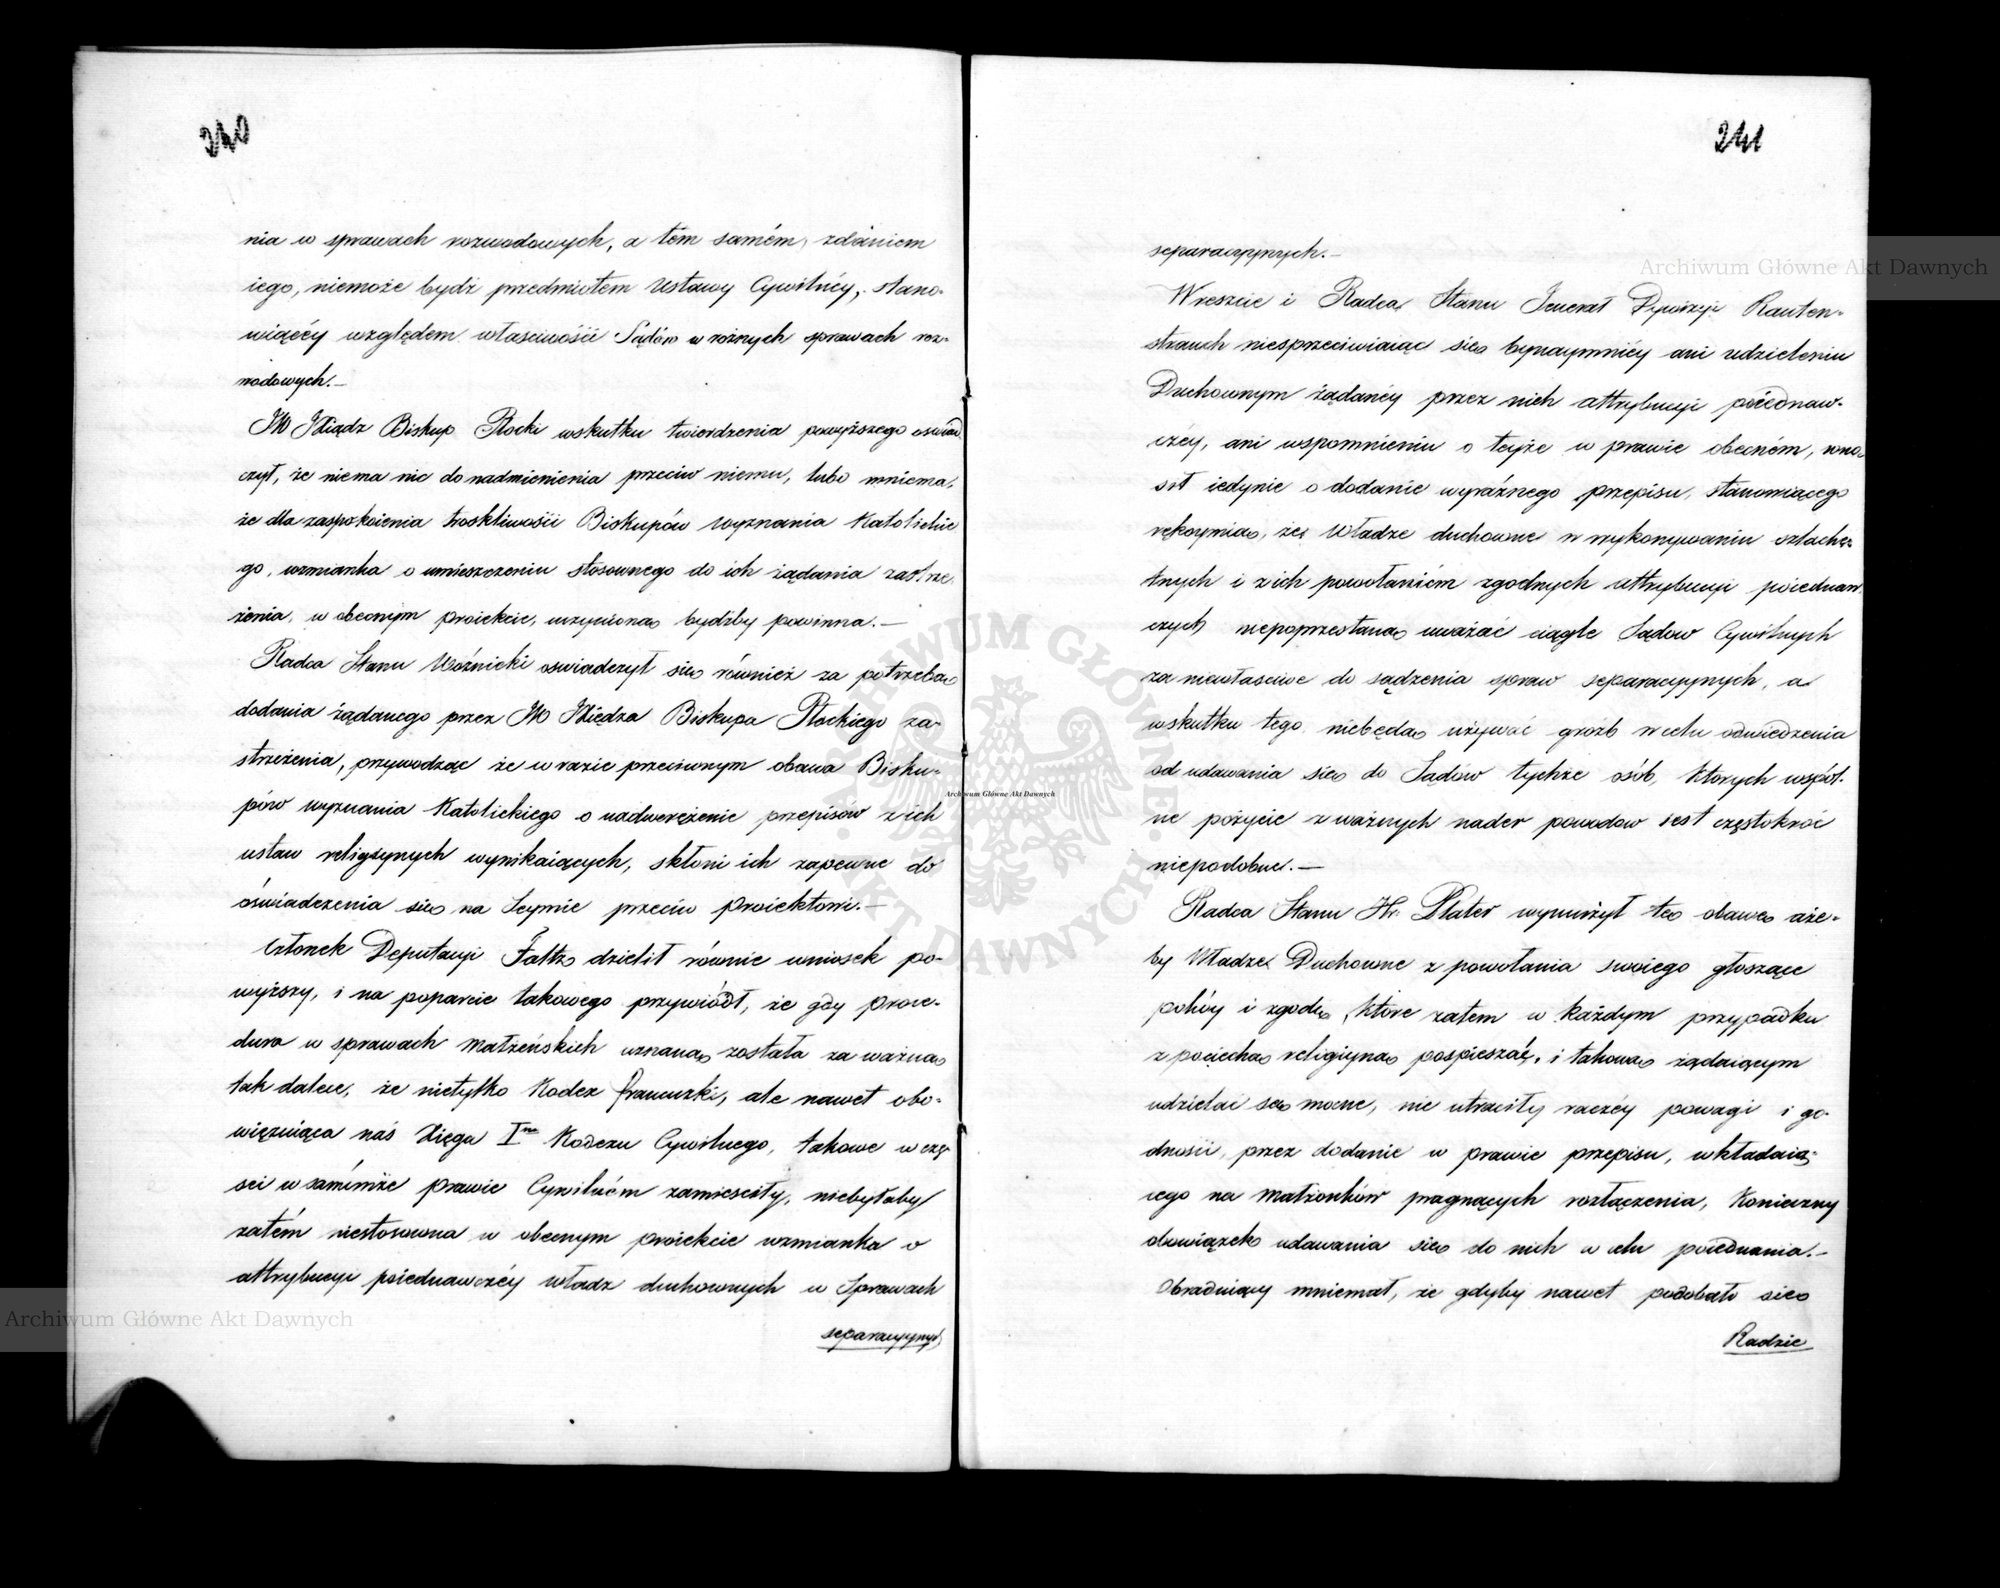 240
nia w sprawach rozwodowych, a tem samém, zdaniem
iego, niemoże bydź przedmiotem Ustawy Cywilnéy, stano-
wiącéy względem właściwości Sądów w różnych sprawach roz-
wodowych.—
JW Xiądz Biskup Płocki wskutku twierdzenia powyższego oświad
czył, że niema nic do nadmienienia przeciw niemu, lubo mniema,
że dla zaspokoienia troskliwości Biskupów wyznania Katolickie
go, wzmianka o umieszczeniu stosownego do ich żądania zastrze
żenia, w obecnym proiekcie, uczyniona bydźby powinna.—
Radca Stanu Woźnicki oswiadczył się również za potrzebą
dodania żądanego przez JW Xiędza Biskupa Płockiego za-
strzeżenia, przywodząc że w razie przeciwnym obawa Bisku-
pów wyznania Katolickiego o nadwerężenie przepisów z ich
ustaw religiynych wynikaiących, skłoni ich zapewne do
oświadczenia się na Seymie przeciw proiektowi.—
Członek Deputacyi Faltz dzielił równie wniosek po-
wyższy, i na poparcie takowego przywiódł, że gdy proce-
dura w sprawach małżeńskich uznaną została za ważną
tak dalece, że nietylko Kodex francuzki, ale nawet obo-
więzuiąca nas Xięga Ima Kodexu Cywilnego, takowe w czę-
ści w samémże prawie Cywilném zamieściły, niebyłaby
zatém niestosowna w obecnym proiekcie wzmianka o
attrybucyi poiednawczéy władz duchownych w Sprawach
separacyynych
241
separacyynych.—
Wreszcie i Radca Stanu Jenerał Dywizyi Rauten-
strauch niesprzeciwiaiąc się bynaymniéy ani udzieleniu
Duchownym żądanéy przez nich attrybucyi poiednaw-
czéy, ani wspomnieniu o teyże w prawie obecném, wno-
sił iedynie o dodanie wyraźnego przepisu, stanowiącego
rękoymią, że Władze duchowne w wykonywaniu szlache-
tnych i z ich powołaniém zgodnych attrybucyi poiednaw
czych niepoprzestaną uważać ciągle Sądów Cywilnych
za niewłaściwe do sądzenia spraw separacyynych, a
wskutku tego niebędą używać gróźb w celu odwiedzenia
od udawania się do Sądów tychże osób, których wspól-
ne pożycie z ważnych nader powodów iest częstokroć
niepodobne.—
Radca Stanu Hr. Plater wynurzył tę obawę aże-
by Władze Duchowne z powołania swoiego głoszące
pokóy i zgodę, które zatem w każdym przypadku
z pociechą religiyną pospieszać, i takową żądaiącym
udzielać są mocne, nie utraciły raczéy powagi i go-
dności, przez dodanie w prawie przepisu, wkładaią-
cego na małżonków pragnących rozłączenia, konieczny
obowiązek udawania się do nich w celu poiednania.—
Obraduiący mniemał, że gdyby nawet podobało się
Radzie
Archiwum Główne Akt Dawnych
Archiwum Główne Akt Dawnych
Archiwum Główne Akt Dawnych
ARCHIWUM GŁÓWNE AKT DAWNYCH